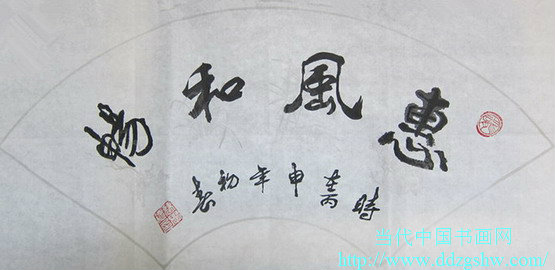 惠風和暢
時在丙申年初
当代中国书画网
http://www.ddzgshw.com/